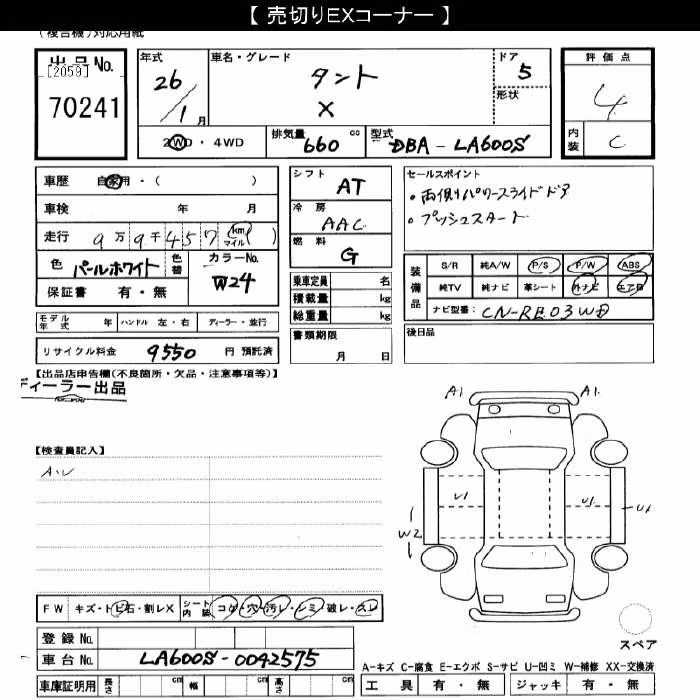 【 売切りEXコーナー 】
(複合機)対応用紙
出品No. [2059] 70241
年式 26/1月
車名・グレード タント X
ドア 5
形状
評価点 4
内装 C
2WD・4WD
排気量 660 cc
型式 DBA-LA600S
車歴 自家用・( )
車検 年 月
走行 9万9千457 km マイル ( )
色 パールホワイト 色替 カラーNo. W24
保証書 有・無
シフト AT
冷房 AAC
燃料 G
乗車定員 名
積載量 kg
総重量 kg
書類期限 月 日
セールスポイント
・両側パワースライドドア
・プッシュスタート
装備品 S/R 純A/W P/S P/W ABS
純TV 純ナビ 革シート 外ナビ エアB
ナビ型番: CN-RE03WD
後日品
モデル年式 年 ハンドル 左・右 ディーラー・並行
リサイクル料金 9550 円 預託済
【出品店申告欄(不良箇所・欠品・注意事項等)】
ディーラー出品
【検査員記入】
A・U
A1 A1
U1 U1 U1
W2
FW キズ・トビ石・割レX シート内装 コゲ・穴・汚レ・シミ・破レ・スレ
スペア
登録No.
車台No. LA600S-0042575
A-キズ C-腐食 E-エクボ S-サビ U-凹ミ W-補修 XX-交換済
車庫証明用 長さ cm 幅 cm 高さ cm
工具 有・無 ジャッキ 有・無